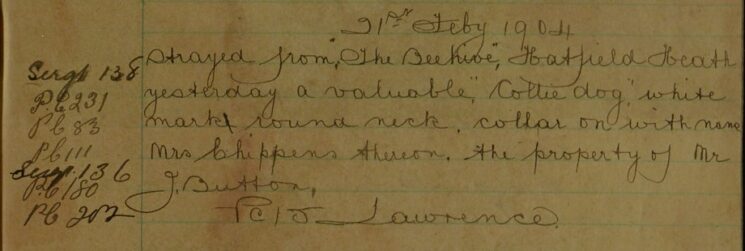 21st Feby 1904
Strayed from "The Beehive", Hatfield Heath
yesterday a valuable "Collie dog" white
mark round neck, collar on with name
Mrs Chippens thereon. the property of Mr
J. Button,
Pc 15 Lawrence
Sergt 138
P.C 231
PC 83
PC 111
Sergt 136
P.C 180
PC 202